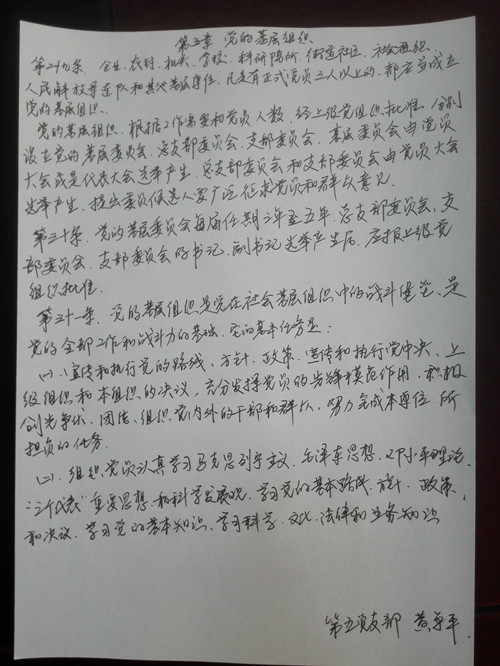 第五章 党的基层组织
第二十九条 企业、农村、机关、学校、科研院所、街道社区、社会组织、
人民解放军连队和其他基层单位,凡是有正式党员三人以上的,都应当成立
党的基层组织。
党的基层组织,根据工作需要和党员人数,经上级党组织批准,分别
设立党的基层委员会、总支部委员会、支部委员会。基层委员会由党员
大会或是代表大会选举产生,总支部委员会和支部委员会由党员大会
选举产生,提出委员候选人要广泛征求党员和群众意见。
第三十条、党的基层委员会每届任期三年至五年,总支部委员会、支
部委员会、支部委员会的书记、副书记选举产生后,应报上级党
组织批准。
第三十一条、党的基层组织是党在社会基层组织中的战斗堡垒,是
党的全部工作和战斗力的基础。它的基本任务是:
(一)、宣传和执行党的路线、方针、政策、宣传和执行党中央、上
级组织和本组织的决议,充分发挥党员的先锋模范作用,积极
创先争优,团结、组织党内外的干部和群众,努力完成本单位所
担负的任务。
(二)、组织党员认真学习马克思列宁主义、毛泽东思想、邓小平理论、
“三个代表”重要思想和科学发展观,学习党的基本路线、方针、政策、
和决议,学习党的基本知识、学习科学、文化、法律和业务知识
第五项支部 黄 平